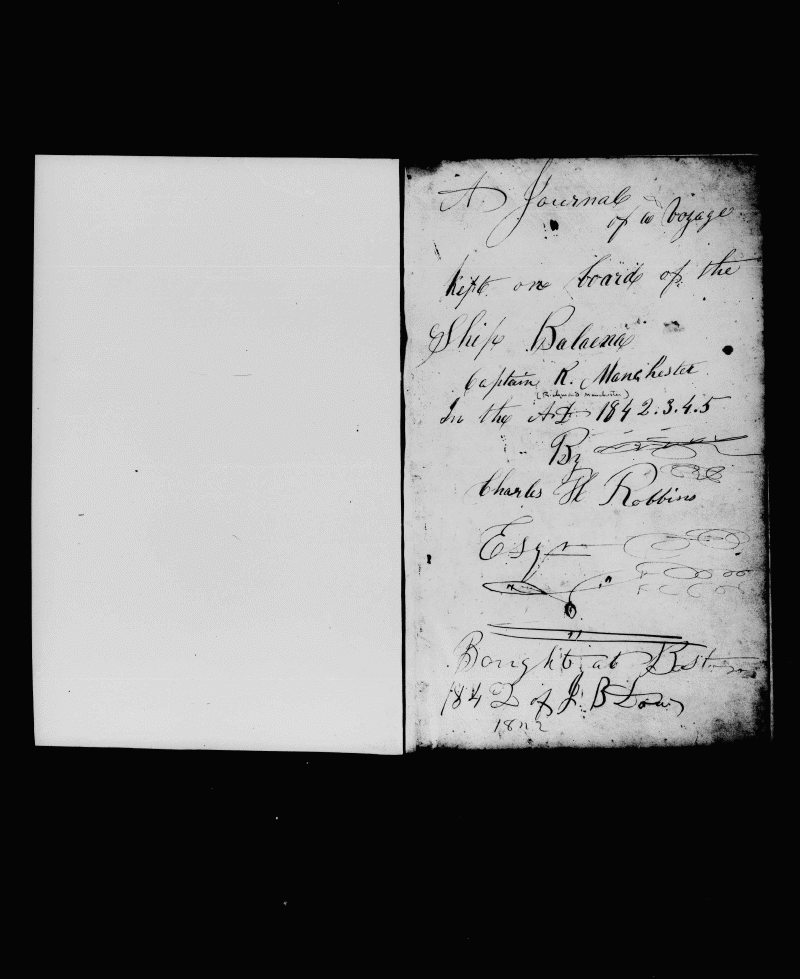 A Journal
of a Voyage
kept on board of the
Ship Balaena
Captain R. Manchester
(Richmond Manchester)
In the A.D. 1842.3.4.5
By
Charles H Robbins
Esqr
Bought at Boston
1842 of J. B Dow